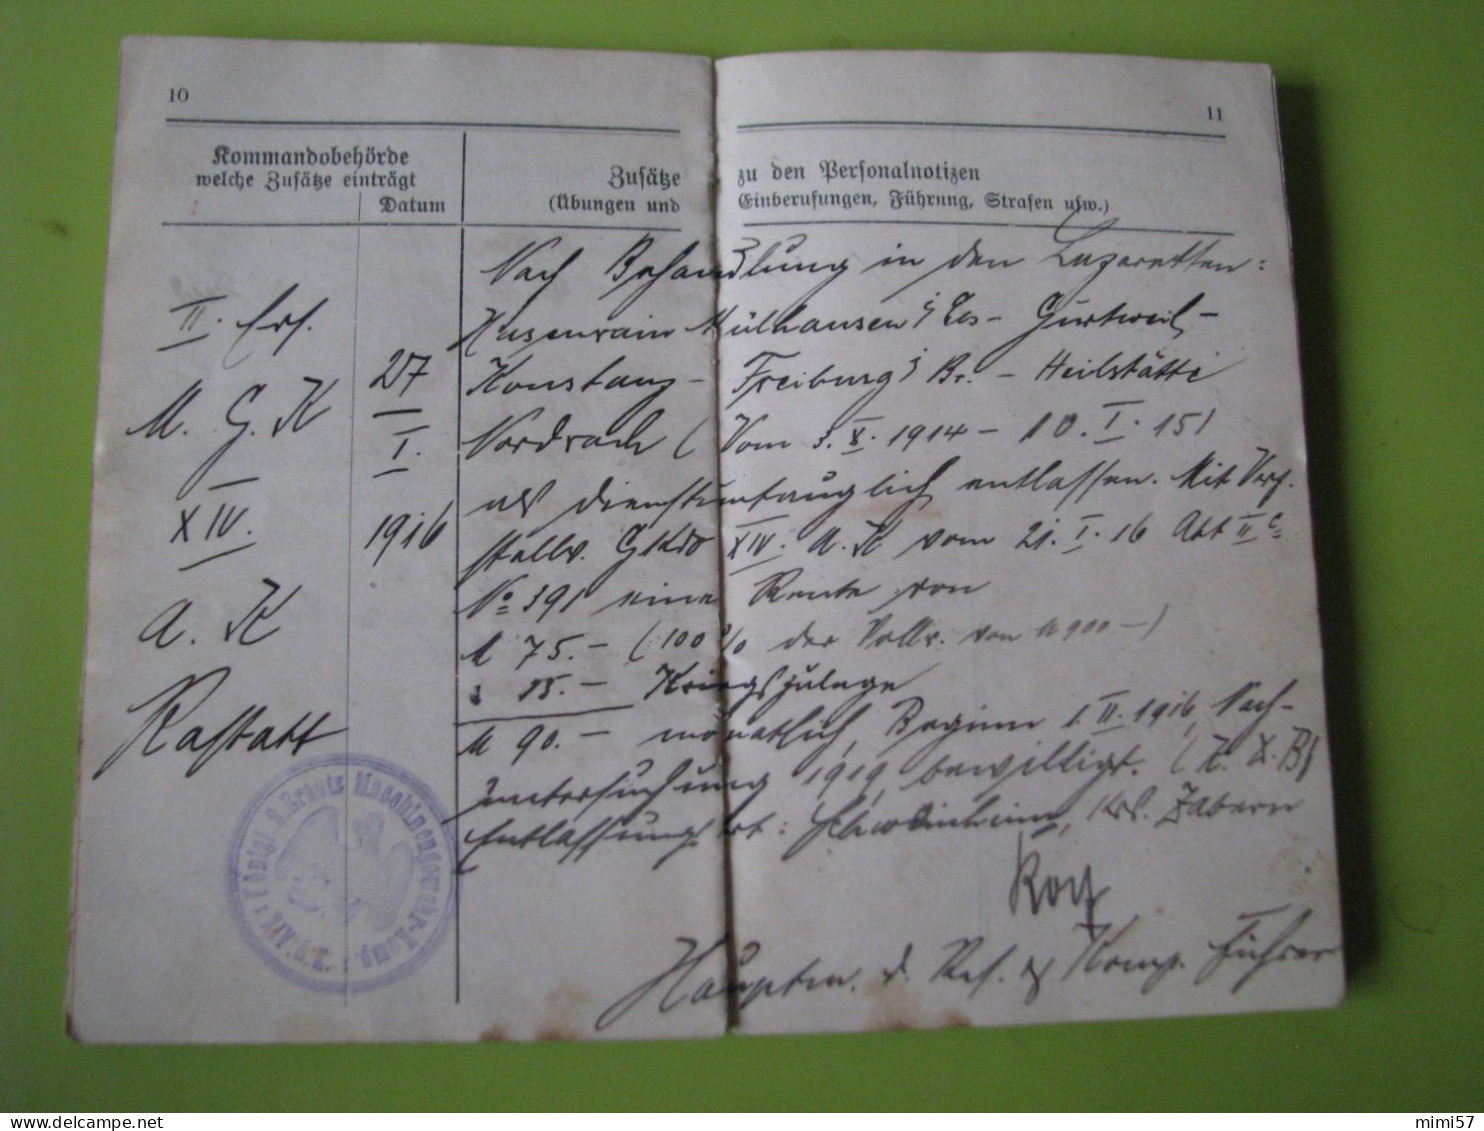 10
11
Kommandobehörde
welche Zusätze einträgt
Datum
Zusätze zu den Personalnotizen
(Übungen und Einberufungen, Führung, Strafen usw.)
II. Ers.
M. G. K
XIV.
A. K
Rastatt
27
I.
1916
Nach Behandlung in den Lazaretten:
Hasenrain Mülhausen i/Els – Gurtweil –
Konstanz – Freiburg i Br. – Heilstätte
Nordrach (Vom 3. X. 1914 – 10. I. 15)
als dienstuntauglich entlassen. Mit Verf.
stellv. Gkdo XIV. A. K vom 21. I. 16 Abt II c
No 391 eine Rente von
M 75.– (100 % der Vollr. von M 900 –)
" 15.– Kriegszulage
M 90.– monatlich, Beginn 1. II. 1916, Nach-
untersuchung 1919, bewilligt. (
Entlassungsort: Schweinheim, Krs. Zabern
Hauptm. d. Res. & Komp. Führer
Königl. 2. Ersatz Maschinengewehr-Komp. XIV. A. K.
mimi57